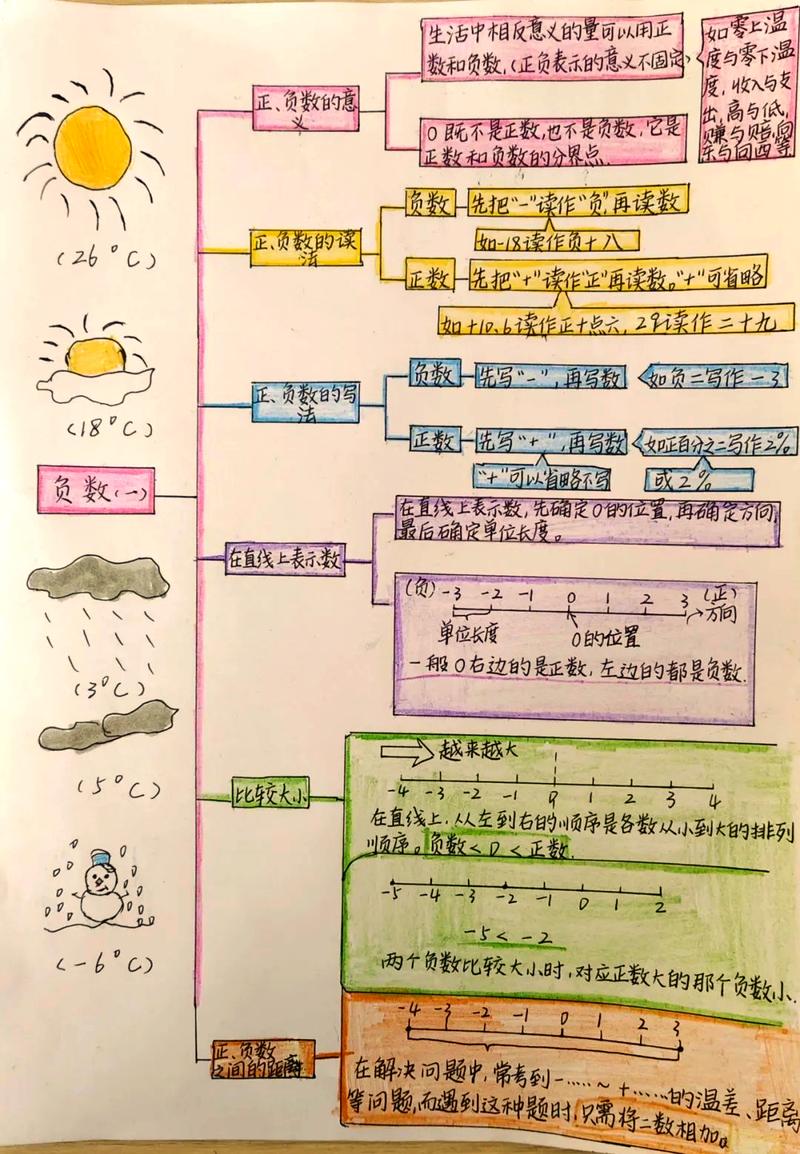 生活中相反意义的量可以用正
数和负数，（正负表示的意义不固定）
如零上温
度与零下温
度，收入与支
出，高与低，
赚与赔，向
东与向西等
正、负数的意
义
0既不是正数，也不是负数，它是
正数和负数的分界点.
(26°C)
正、负数的读
法
负数
先把“-”读作“负”，再读数
如-18读作负十八
正数
先把“+”读作“正”再读数。“+”可省略
如+10.6读作正十点六，29读作二十九
(18°C)
正、负数的写
法
负数
先写“-”，再写数
如负三写作-3
正数
先写“+”，再写数
如正百分之二写作2%
“+”可以省略不写
或2%
负数(一)
在直线上表示数
在直线上表示数，先确定0的位置，再确定方向，
最后确定单位长度。
(负) -3 -2 -1 0 1 2 3 (正)
方向
单位长度 0的位置
一般0右边的是正数，左边的都是负数.
(3°C)
(5°C)
比较大小
越来越大
-4 -3 -2 -1 0 1 2 3 4
在直线上，从左到右的顺序是各数从小到大的排列
顺序。负数<0<正数.
-5 -4 -3 -2 -1 0 1 2
-5<-2
两个负数比较大小时，对应正数大的那个负数小.
(-6°C)
正、负数
之间的距离
-4 -3 -2 -1 0 1 2 3
在解决问题中，常考到-……~+……的温差、距离
等问题，而遇到这种题时，只需将二数相加。